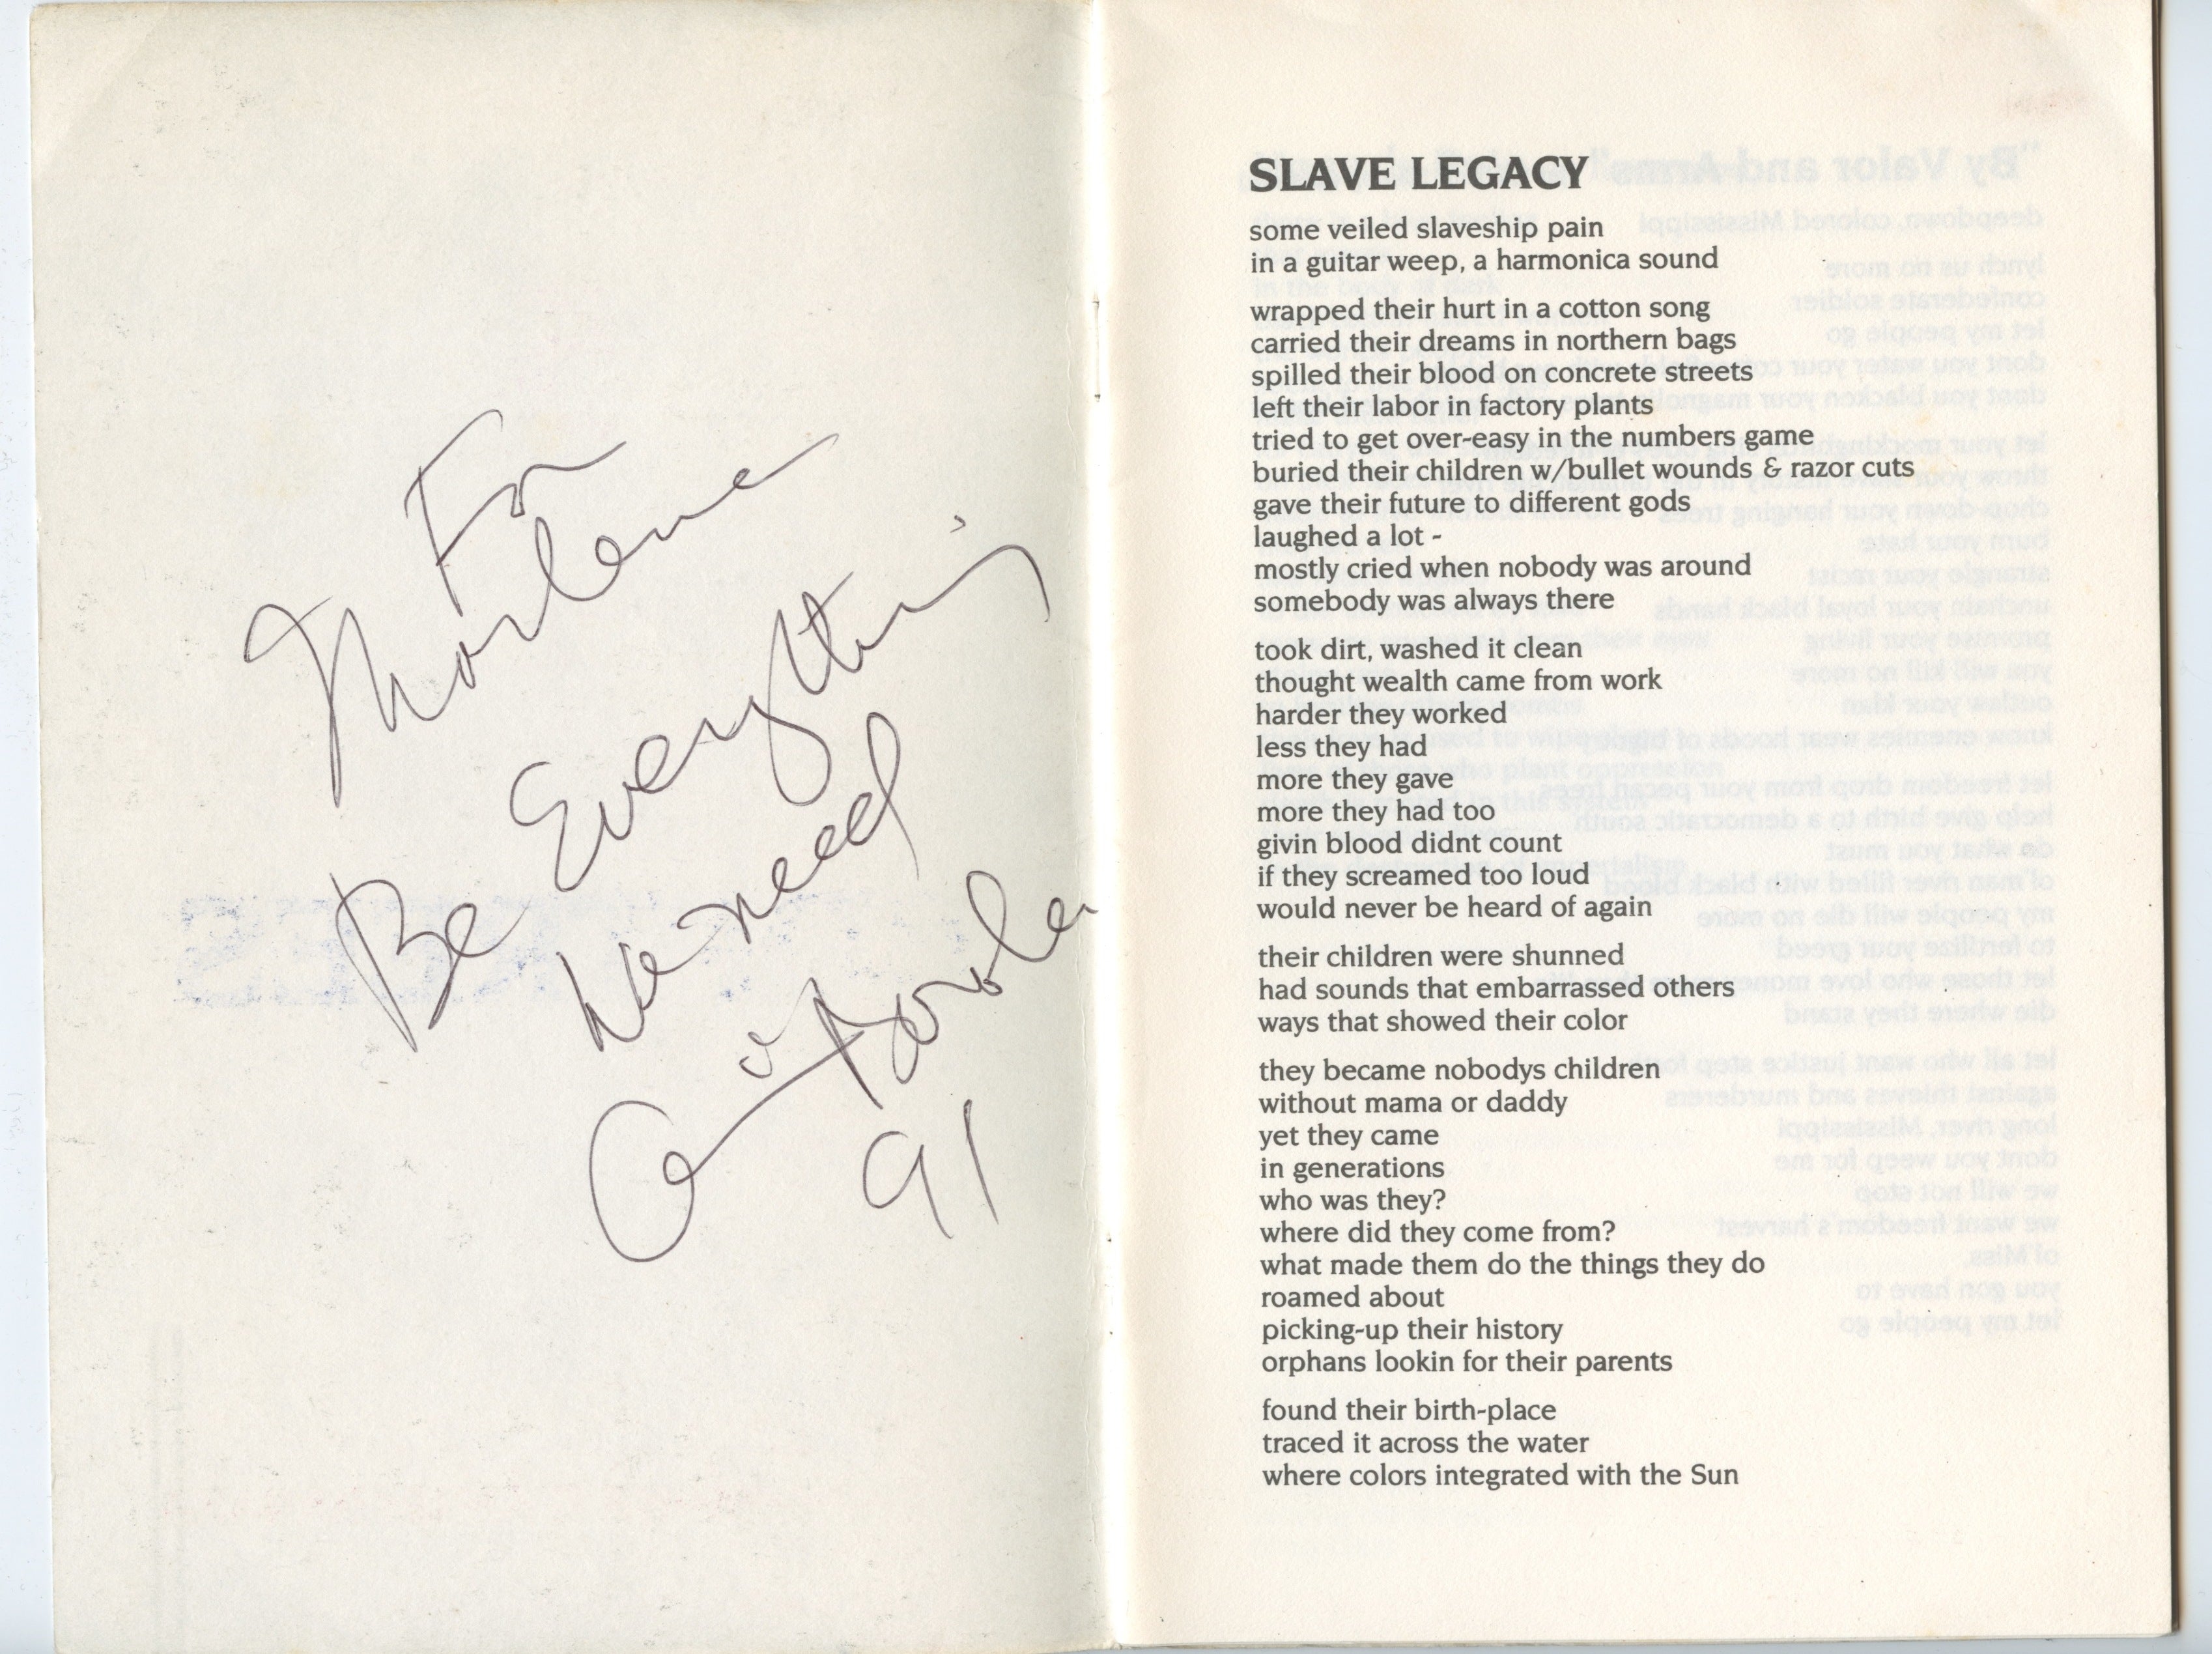 For
Marlene
Be Everything
We need
91
SLAVE LEGACY
some veiled slaveship pain
in a guitar weep, a harmonica sound
wrapped their hurt in a cotton song
carried their dreams in northern bags
spilled their blood on concrete streets
left their labor in factory plants
tried to get over-easy in the numbers game
buried their children w/bullet wounds & razor cuts
gave their future to different gods
laughed a lot -
mostly cried when nobody was around
somebody was always there
took dirt, washed it clean
thought wealth came from work
harder they worked
less they had
more they gave
more they had too
givin blood didnt count
if they screamed too loud
would never be heard of again
their children were shunned
had sounds that embarrassed others
ways that showed their color
they became nobodys children
without mama or daddy
yet they came
in generations
who was they?
where did they come from?
what made them do the things they do
roamed about
picking-up their history
orphans lookin for their parents
found their birth-place
traced it across the water
where colors integrated with the Sun